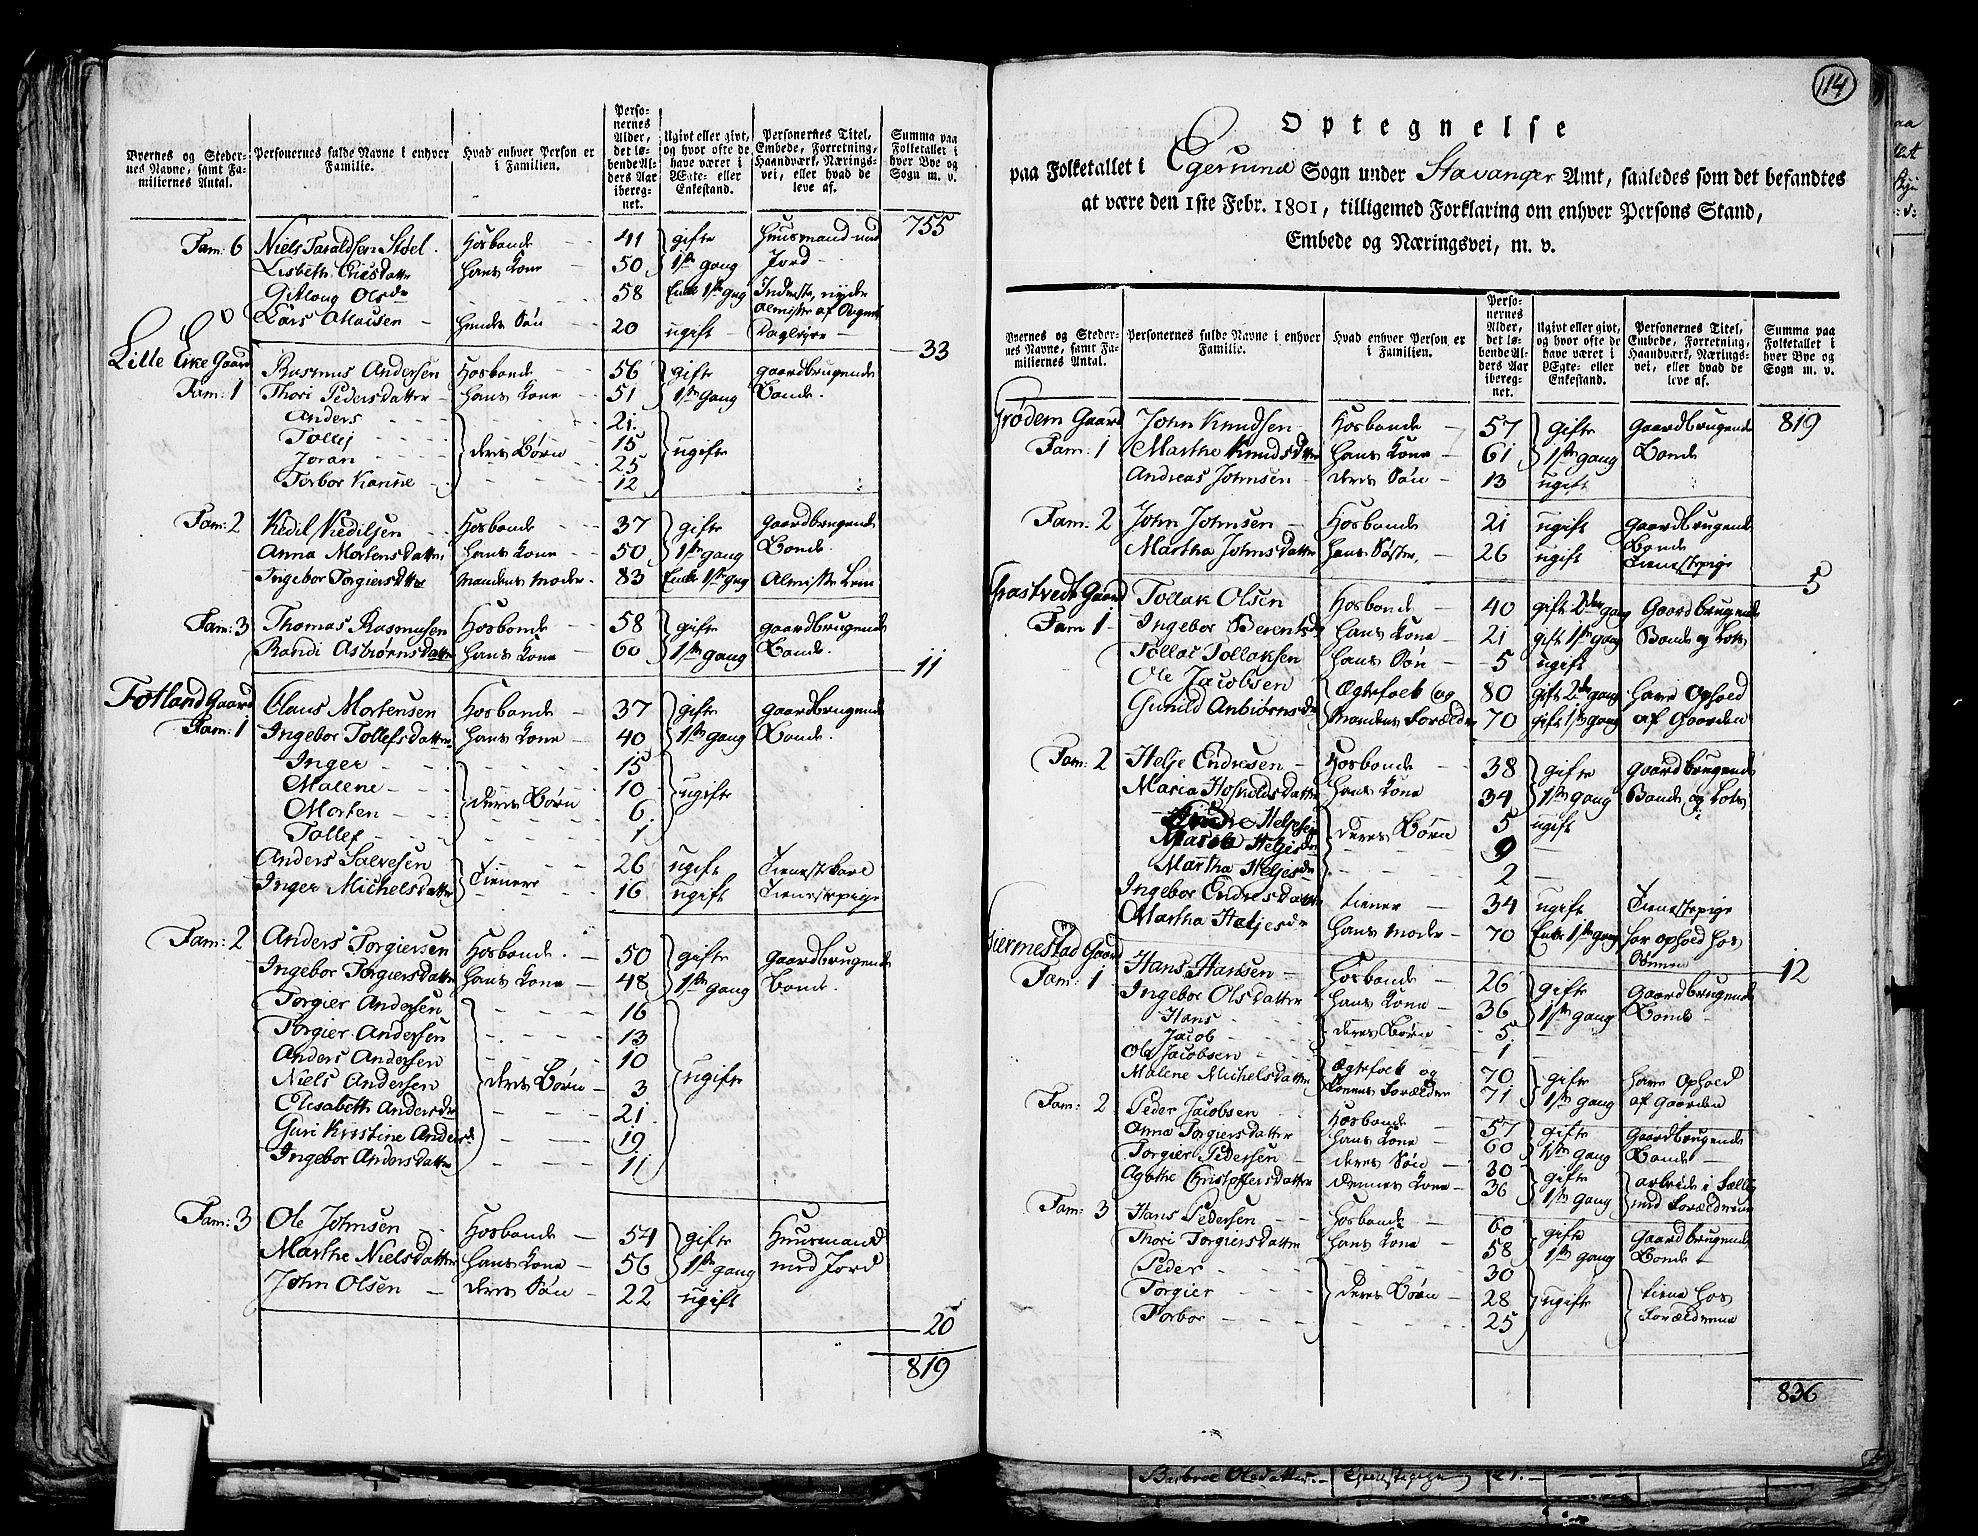 Byernes og Steder-
nes Navne, samt Fa-
miliernes Antal.
Personernes fulde Navne i enhver
Familie.
Hvad enhver Person er
i Familien.
Perso-
nernes
Alder,
det lø-
bende Al-
ders Aar
iberegnet.
Ugivt eller givt,
og hvor ofte de
have været i
Ægte- eller
Enkestand.
Personernes Titel,
Embede, Forretning,
Haandværk, Nærings-
vei, eller hvad de
leve af.
Summa paa
Folketallet i
hver Bye og
Sogn m. v.
755
Fam: 6 Niels Taraldsen Støel Hosbonde 41 gifte Huusmand med
Lisbeth Eriksdatter hans Kone 50 1ste gang Jord
Gitlaug Olsdr 58 Enke 1ste gang Inderste, nyder
Almisse af Sognet
Lars Mausen hendes Søn 20 ugift Dagleyer
33
Lille Eke Gaard Rasmus Andersen Hosbonde 56 gifte gaardbrugende
Fam: 1 Thori Pedersdatter hans Kone 51 1ste gang Bonde.
Anders 21
Tollej deres Børn 15 ugifte
Joran 25
Torbor Karine 12
Fam: 2 Kedil Kedilsen Hosbonde 37 gifte gaardbrugende
Anna Mortensdatter hans Kone 50 1ste gang Bonde.
Ingebor Torgiersdatter Mandens Moder 83 Enke 1ste gang Almisse Lem
Fam: 3 Thomas Rasmusen Hosbonde 58 gifte gaardbrugende
Randi Asbiørnsdatter hans Kone 60 1ste gang Bonde.
11
Fotland Gaard Claus Mortensen Hosbonde 37 gifte gaardbrugende
Fam: 1 Ingebor Tollefsdatter hans Kone 40 1ste gang Bonde.
Inger 15
Malene deres Børn 10 ugifte
Morten 6
Tollef 1
Anders Salvesen Tienere 26 ugift Tienestkarl
Inger Michelsdatter 16 ugift Tienestepige
Fam: 2 Anders Torgiersen Hosbonde 50 gifte gaardbrugende
Ingebor Torgiersdatter hans Kone 48 1ste gang Bonde.
Torgier Andersen 16
Torgier Andersen 13
Anders Andersen 10
Niels Andersen deres Børn 3 ugifte
Elisabeth Andersdr 21
Guri Kristine Andersd 19
Ingebor Andersdatter 11
Fam: 3 Ole Johnsen Hosbonde 54 gifte Huusmand
Marthe Nielsdatter hans Kone 56 1ste gang med Jord
John Olsen deres Søn 22 ugift
20
819
114
Optegnelse
paa Folketallet i Egersund Sogn under Stavanger Amt, saaledes som det befandtes
at være den 1ste Febr. 1801, tilligemed Forklaring om enhver Persons Stand,
Embede og Næringsvei, m. v.
Byernes og Steder-
nes Navne, samt Fa-
miliernes Antal.
Personernes fulde Navne i enhver
Familie.
Hvad enhver Person er
i Familien.
Perso-
nernes
Alder,
det lø-
bende Al-
ders Aar
ibereg-
net.
Ugivt eller givt,
og hvor ofte de
have været i
Ægte- eller
Enkestand.
Personernes Titel,
Embede, Forretning,
Haandværk, Nærings-
vei, eller hvad de
leve af.
Summa paa
Folketallet i
hver Bye og
Sogn m. v.
Grødem Gaard John Knudsen Hosbonde 57 gifte Gaardbrugende 819
Fam: 1 Marthe Knudsdatter hans Kone 61 1ste gang Bonde
Andreas Johnsen deres Søn 13 ugift
Fam: 2 John Johnsen Hosbonde 21 ugift Gaardbrugende
Bonde
Martha Johnsdatter hans Søster 26 ugift Tienestepige
5
Grastvedt Gaard Tollak Olsen Hosbonde 40 gift 2den gang Gaardbrugende
Fam 1 Ingebor Berentsdr hans Kone 21 gift 1ste gang Bonde og Lods
Tollac Tollaksen hans Søn 5 ugift
Ole Jacobsen Ægtefolk og 80 gift 2den gang have Ophold
Gunild Anbiørnsdr Mandens Forældre 70 gift 1ste gang af Gaarden
Fam: 2 Helje Endresen Hosbonde 38 gifte Gaardbrugende
Maria Hofnildsdatter hans Kone 34 1ste gang Bonde og Lods
Endre Heljesen deres Børn 5 ugift
Heljesdr 9
Martha Heljesdr 2
Ingebor Endresdatter tiener 34 ugift Tienestepige
Martha Heljesdr hans Moder 70 Enke 1ste gang har ophold hos
Sønnen
12
Hiermestad Gaard Hans Hansen Hosbonde 26 gifte Gaardbrugende
Fam: 1 Ingebor Olsdatter hans Kone 36 1ste gang Bonde
Hans deres Børn 5
Jacob 1
Ole Jacobsen Ægtefolk og 70 gifte have Ophold
Malene Michelsdatter Konens Forældre 71 1ste gang af Gaarden
Fam: 2 Peder Jacobsen Hosbonde 57 gifte Gaardbrugende
Anna Torgiersdatter hans Kone 60 1ste gang Bonde
Torgier Pedersen deres Søn 30 gifte arbeide i Fælles
Agathe Christophersdatter dennes Kone 36 1ste gang med Forældrene
Fam: 3 Hans Pedersen Hosbonde 60 gifte Gaardbrugende
Thori Torgiersdatter hans Kone 58 1ste gang Bonde
Peder 30
Torgier deres Børn 28 ugifte tiene hos
Torbor 25 Forældrene
836